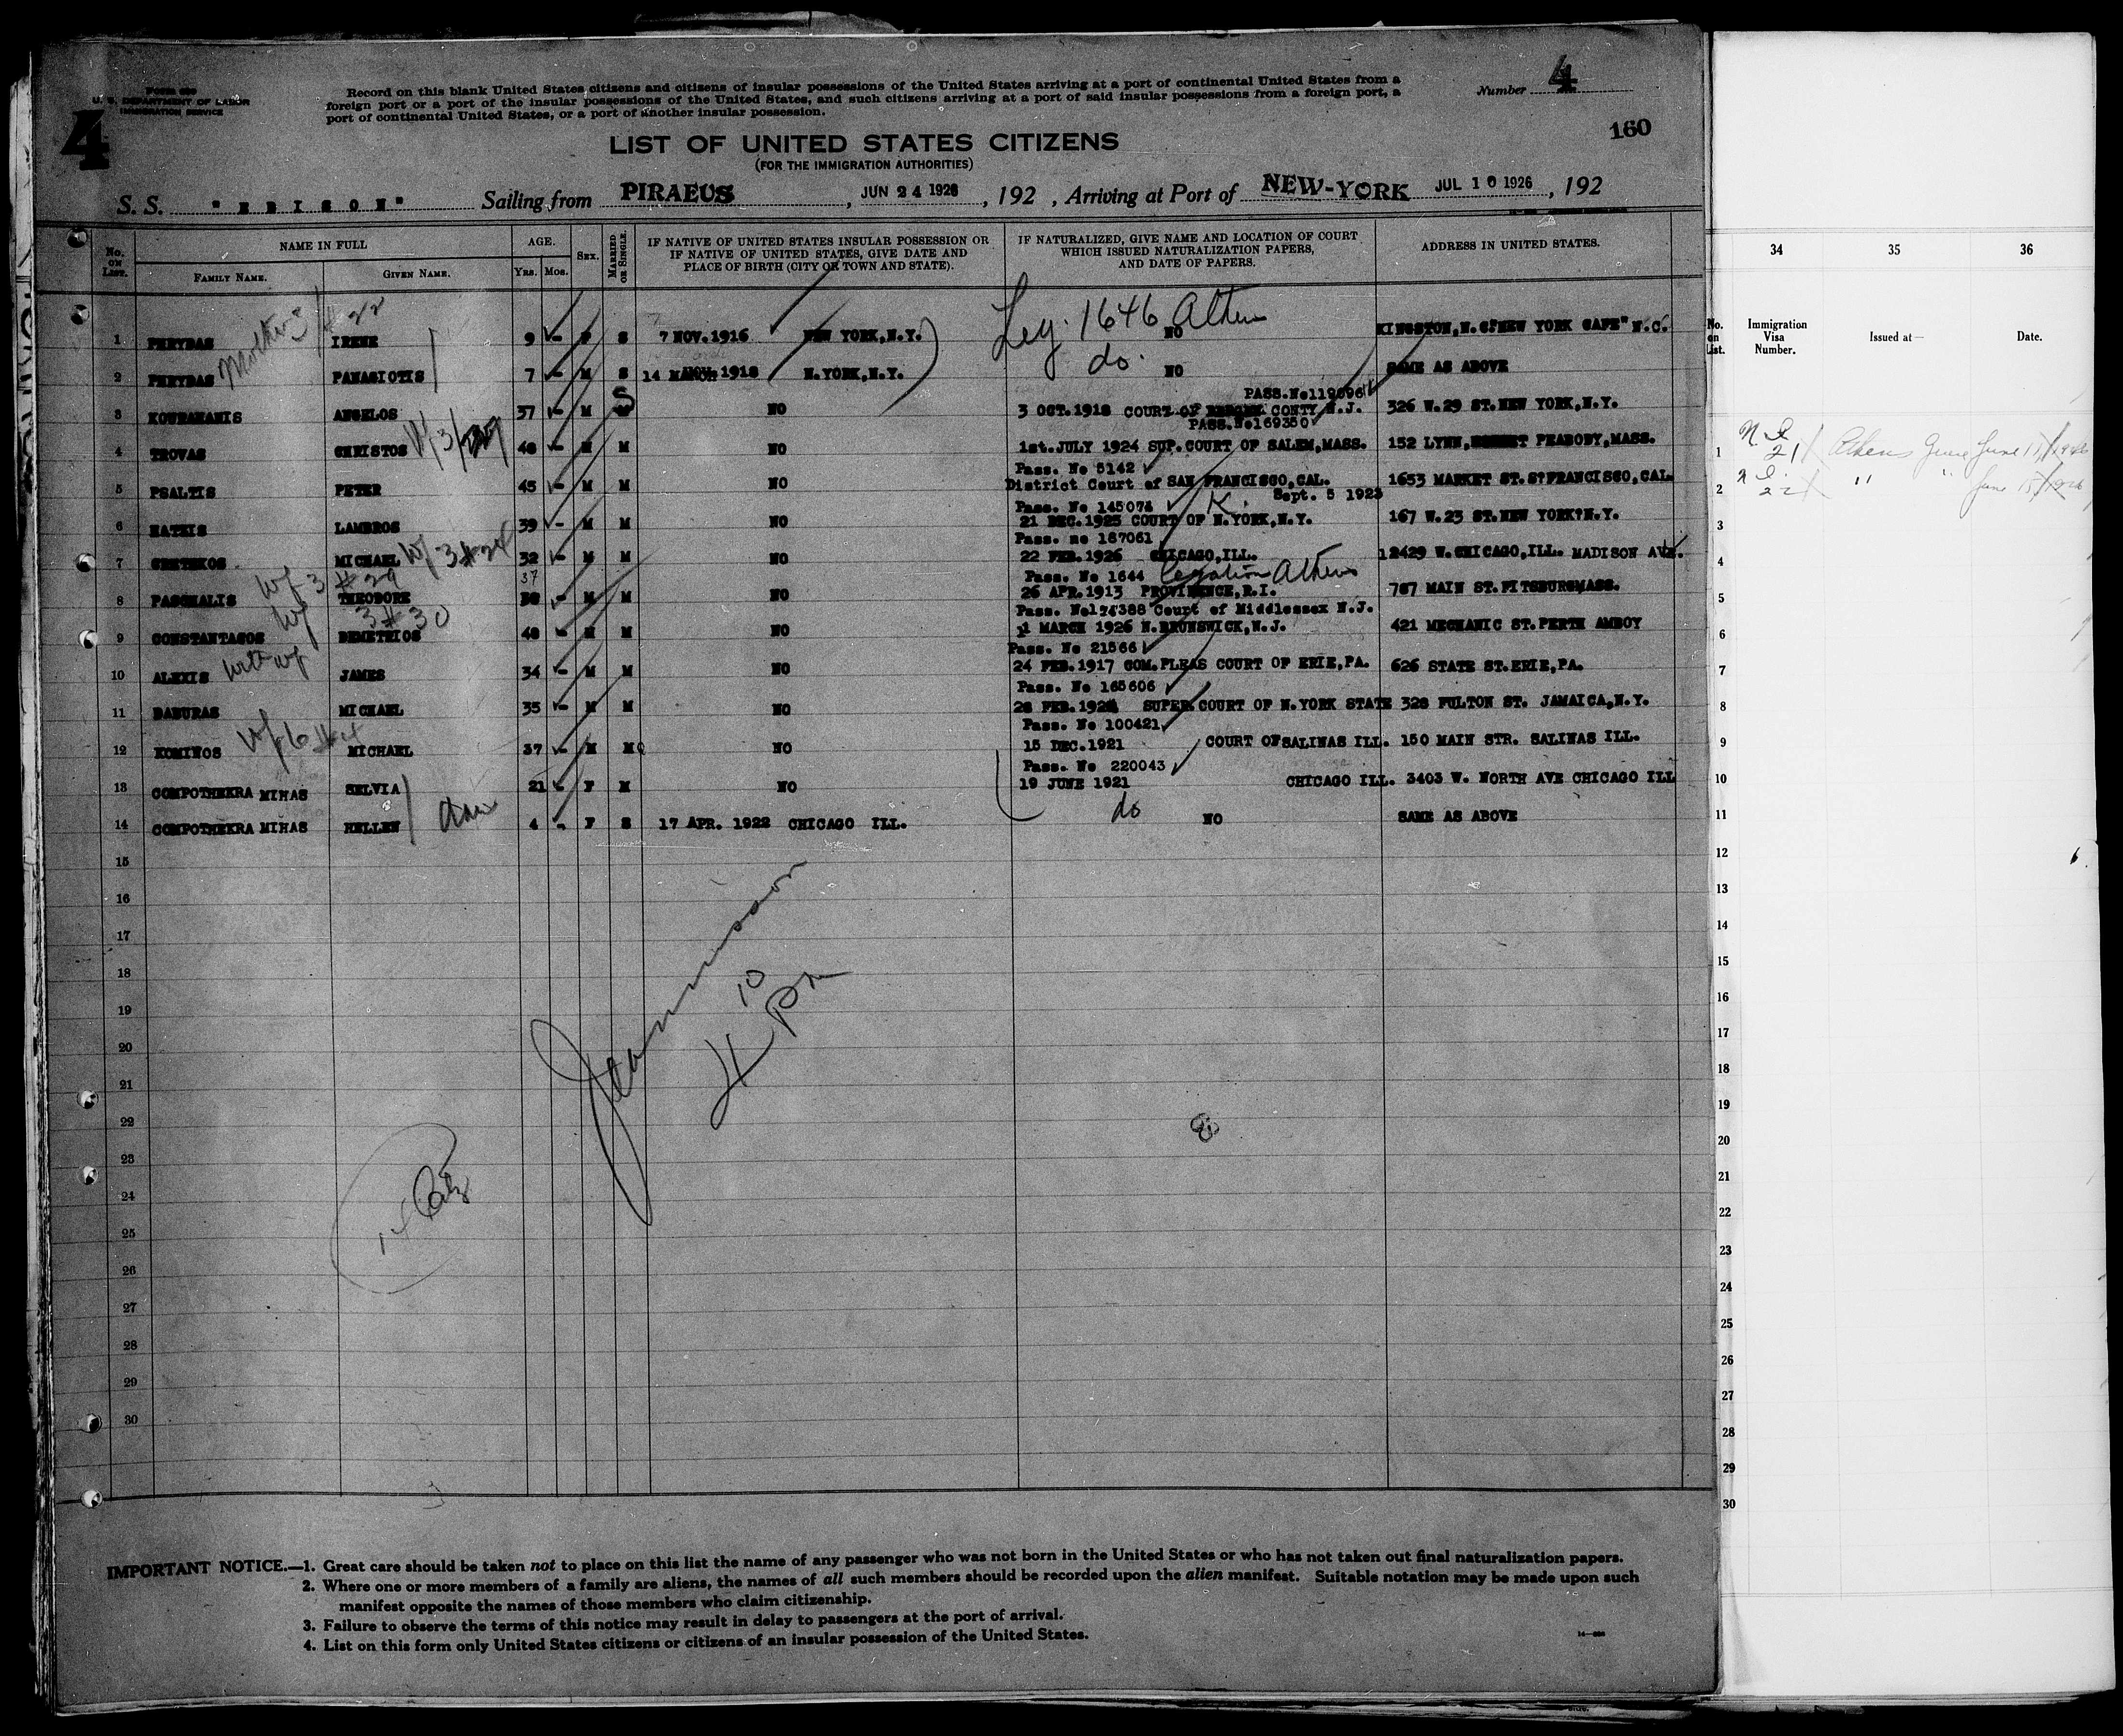 Form 630
U. S. DEPARTMENT OF LABOR
IMMIGRATION SERVICE
4
Record on this blank United States citizens and citizens of insular possessions of the United States arriving at a port of continental United States from a
foreign port or a port of the insular possessions of the United States, and such citizens arriving at a port of said insular possessions from a foreign port, a
port of continental United States, or a port of another insular possession.
Number 4
160
LIST OF UNITED STATES CITIZENS
(FOR THE IMMIGRATION AUTHORITIES)
S. S. "EDISON" Sailing from PIRAEUS, JUN 24 1926, 192 , Arriving at Port of NEW-YORK JUL 10 1926, 192
No. on List. NAME IN FULL FAMILY NAME. GIVEN NAME. AGE. YRS. MOS. SEX. MARRIED OR SINGLE.
IF NATIVE OF UNITED STATES INSULAR POSSESSION OR
IF NATIVE OF UNITED STATES, GIVE DATE AND
PLACE OF BIRTH (CITY OR TOWN AND STATE).
IF NATURALIZED, GIVE NAME AND LOCATION OF COURT
WHICH ISSUED NATURALIZATION PAPERS,
AND DATE OF PAPERS.
ADDRESS IN UNITED STATES.
Leg. 1646 Athens
1 IRENE 9 - F S 7 NOV. 1916 NEW YORK, N.Y. NO KINGSTON, N. C. "NEW YORK CAFE" N.C.
do.
2 PANAGIOTIS 7 - M S 14 1918 N.YORK, N.Y. NO SAME AS ABOVE
PASS.No119696
3 ANGELOS 37 - M S NO 3 OCT. 1918 COURT OF CONTY N.J. 326 W.29 ST.NEW YORK, N.Y.
PASS.No169350
4 TROVAS CHRISTOS 40 - M M NO 1st.JULY 1924 SUP. COURT OF SALEM, MASS. 152 LYNN, PEABODY, MASS.
Pass. No 5142
5 PSALTIS PETER 45 - M M NO District Court of SAN FRANCISCO, CAL. 1653 MARKET ST. FRANCISCO, CAL.
Sept. 5 1923
Pass. No 145074
6 LAMBROS 39 - M M NO 21 DEC. 1925 COURT OF N.YORK, N.Y. 167 W.23 ST.NEW YORK N.Y.
Pass. no 187061
7 MICHAEL 32 - M M NO 22 FEB. 1926 CHICAGO, ILL. 12429 W.CHICAGO, ILL. MADISON AVE.
Pass. No 1644 Legation Athens
37
8 PASCHALIS THEODORE - M M NO 26 APR. 1913 PROVIDENCE, R.I. 767 MAIN ST. FITSBURGMASS.
Pass. No124388 Court of Middlessex N.J.
3 # 30
9 CONSTANTACOS DEMETRIOS 40 - M M NO 1 MARCH 1926 N.BRUNSWICK, N.J. 421 MECHANIC ST.PERTH AMBOY
Pass. No 21566
10 ALEXIS JAMES 34 - M M NO 24 FEB. 1917 COM. PLEAS COURT OF ERIE, PA. 626 STATE ST.ERIE, PA.
Pass. No 165606
11 BABURAS MICHAEL 35 - M M NO 28 FEB. 1924 SUPER COURT OF N.YORK STATE 328 FULTON ST. JAMAICA, N.Y.
Pass. No 100421
12 KOMINOS MICHAEL 37 - M M NO 15 DEC. 1921 COURT OF SALINAS ILL. 150 MAIN STR. SALINAS ILL.
Pass. No 220043
13 COMPOTHEKRA MIHAS SELVIA 21 - F M NO 19 JUNE 1921 CHICAGO ILL. 3403 W. NORTH AVE CHICAGO ILL
do
14 COMPOTHEKRA MIHAS HELLEN 4 - F S 17 APR. 1922 CHICAGO ILL. NO SAME AS ABOVE
15
16
17
18
19
20
21
22
23
24
25
26
27
28
29
30
4 10 pm
IMPORTANT NOTICE.—1. Great care should be taken not to place on this list the name of any passenger who was not born in the United States or who has not taken out final naturalization papers.
2. Where one or more members of a family are aliens, the names of all such members should be recorded upon the alien manifest. Suitable notation may be made upon such
manifest opposite the names of those members who claim citizenship.
3. Failure to observe the terms of this notice may result in delay to passengers at the port of arrival.
4. List on this form only United States citizens or citizens of an insular possession of the United States.
34 35 36
No. on List. Immigration Visa Number. Issued at— Date.
1 21 Athens June 15/1926
2 22 " " June 15/1926
3
4
5
6
7
8
9
10
11
12
13
14
15
16
17
18
19
20
21
22
23
24
25
26
27
28
29
30